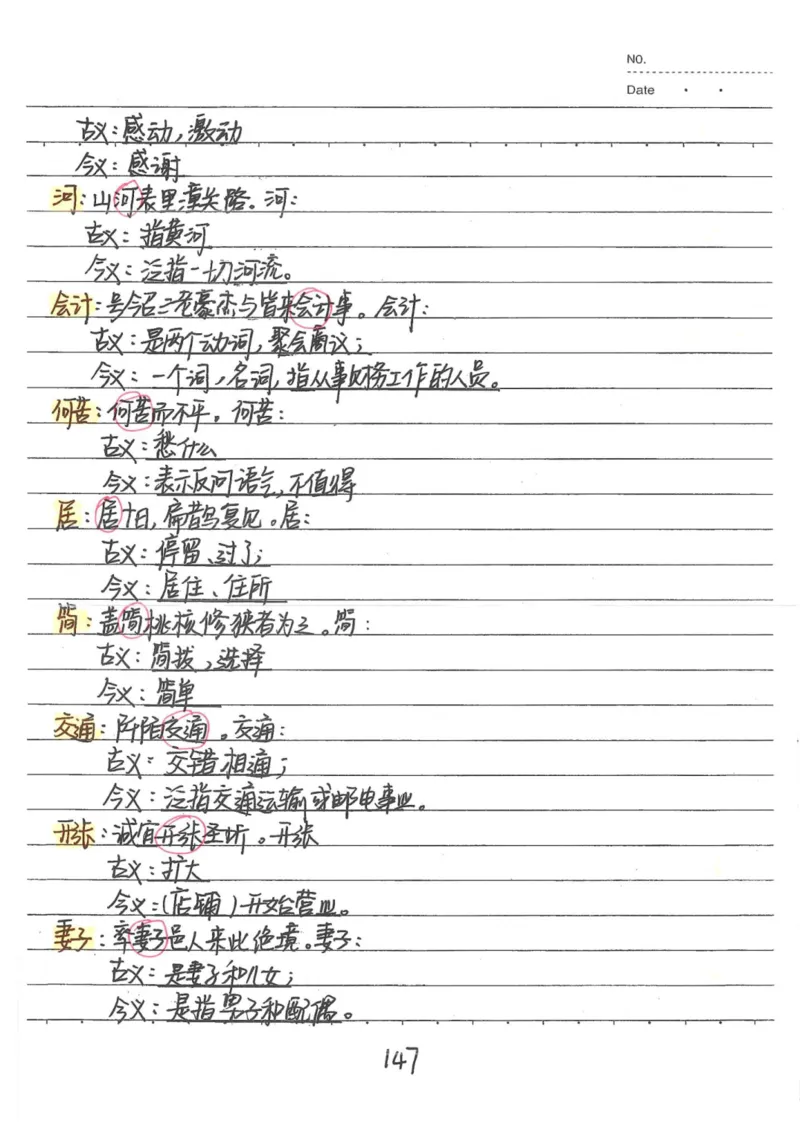 NO.
Date
古义：感动，激动
今义：感谢
河：山河表里潼关路。河：
古义：指黄河
今义：泛指一切河流。
会计：号令召三老豪杰与皆来会计事。会计：
古义：是两个动词，聚会商议；
今义：一个词，名词，指从事财务工作的人员。
何苦：何苦而不平。何苦：
古义：愁什么
今义：表示反问语气，不值得
居：居十日，扁鹊复见。居：
古义：停留、过了；
今义：居住、住所
简：盖简桃核修狭者为之。简：
古义：简拔，选择
今义：简单
交通：阡陌交通。交通：
古义：交错相通；
今义：泛指交通运输或邮电事业。
开张：诚宜开张圣听。开张
古义：扩大
今义：（店铺）开始营业。
妻子：率妻子邑人来此绝境。妻子：
古义：是妻子和儿女；
今义：是指男子和配偶。
147